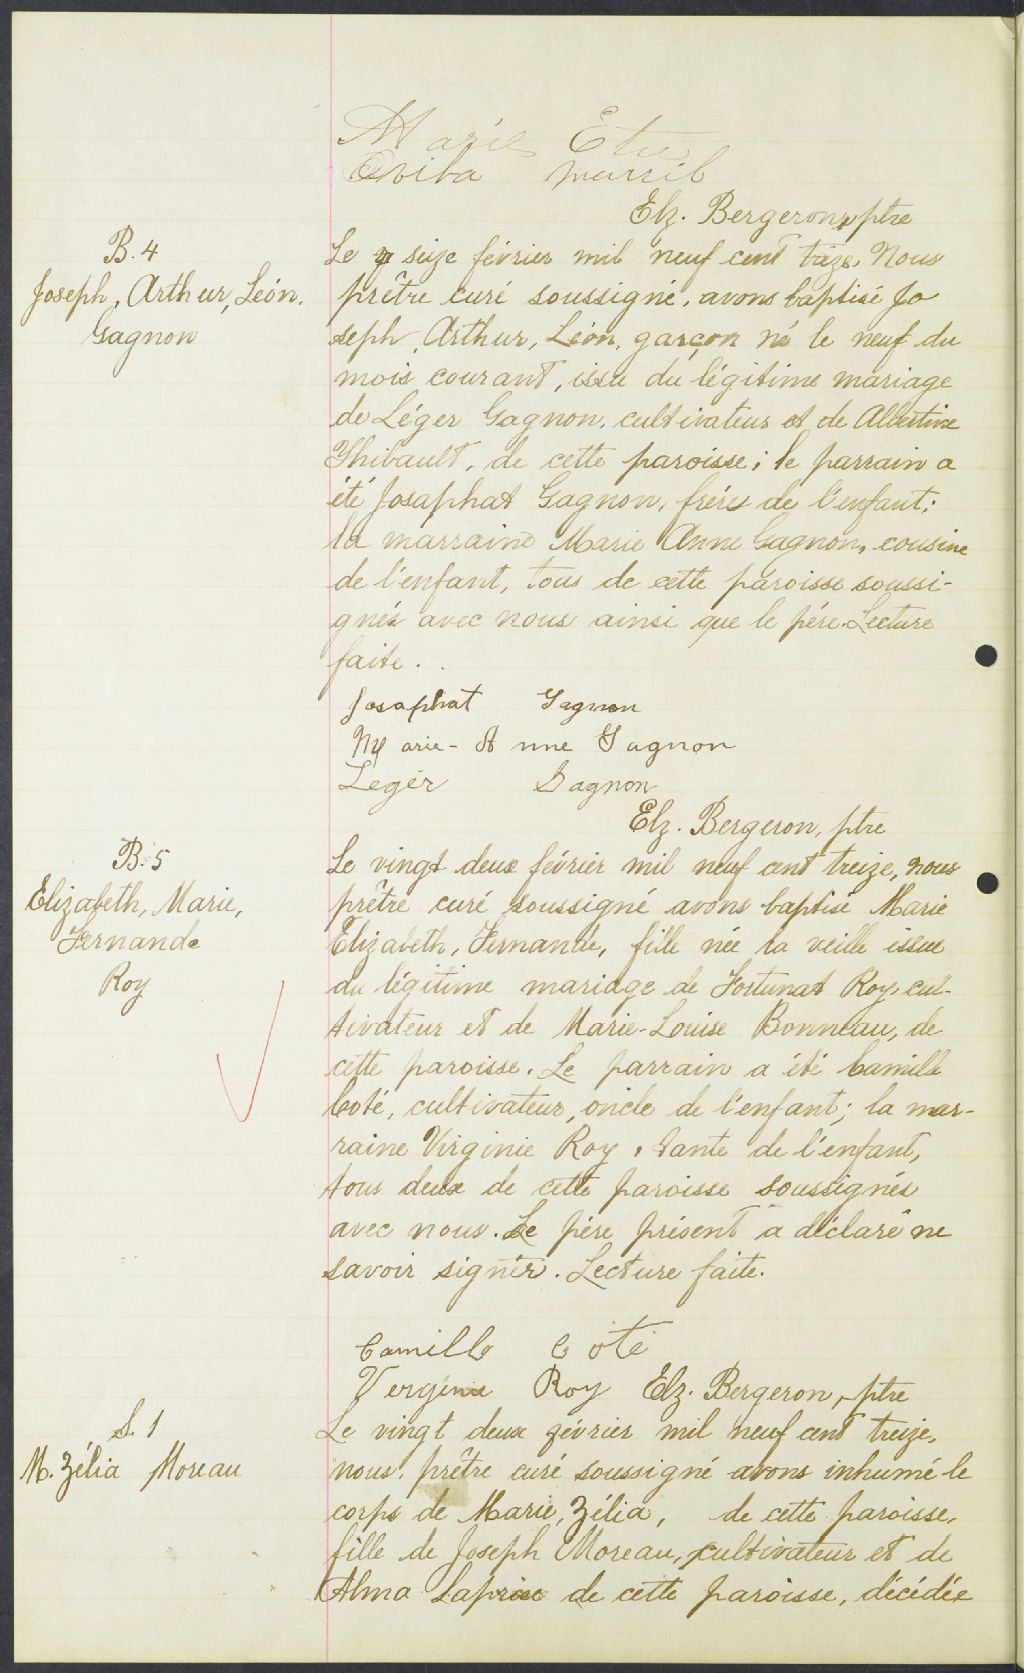 Marie
Elz. Bergeron, ptre
B. 4
Joseph, Arthur, Léon.
Gagnon
Le seize février mil neuf cent treize, Nous
prêtre curé soussigné, avons baptisé Jo
seph, Arthur, Léon, garçon né le neuf du
mois courant, issu du légitime mariage
de Léger Gagnon, cultivateur et de Albertine
Thibault, de cette paroisse; le parrain a
été Josaphat Gagnon, frère de l'enfant;
la marraine Marie Anne Gagnon, cousine
de l'enfant, tous de cette paroisse soussi-
gnés avec nous ainsi que le père. Lecture
faite.
Josaphat Gagnon
Marie-Anne Gagnon
Leger Gagnon
Elz. Bergeron, ptre
B. 5
Elizabeth, Marie,
Fernande
Roy
Le vingt deux février mil neuf cent treize, nous
prêtre curé soussigné avons baptisé Marie
Elizabeth, Fernande, fille née la veille issue
du légitime mariage de Fortunat Roy, cul-
tivateur et de Marie-Louise Bonneau, de
cette paroisse. Le parrain a été Camille
Coté, cultivateur, oncle de l'enfant; la mar-
raine Virginie Roy, tante de l'enfant,
tous deux de cette paroisse soussignés
avec nous. Le père présent a déclaré ne
savoir signer. Lecture faite.
Camille Coté
Vergine Roy Elz. Bergeron, ptre
S. 1
M. Zélia Moreau
Le vingt deux février mil neuf cent treize,
nous, prêtre curé soussigné avons inhumé le
corps de Marie, Zélia, de cette paroisse,
fille de Joseph Moreau, cultivateur et de
Alma Laprise de cette paroisse, décédée